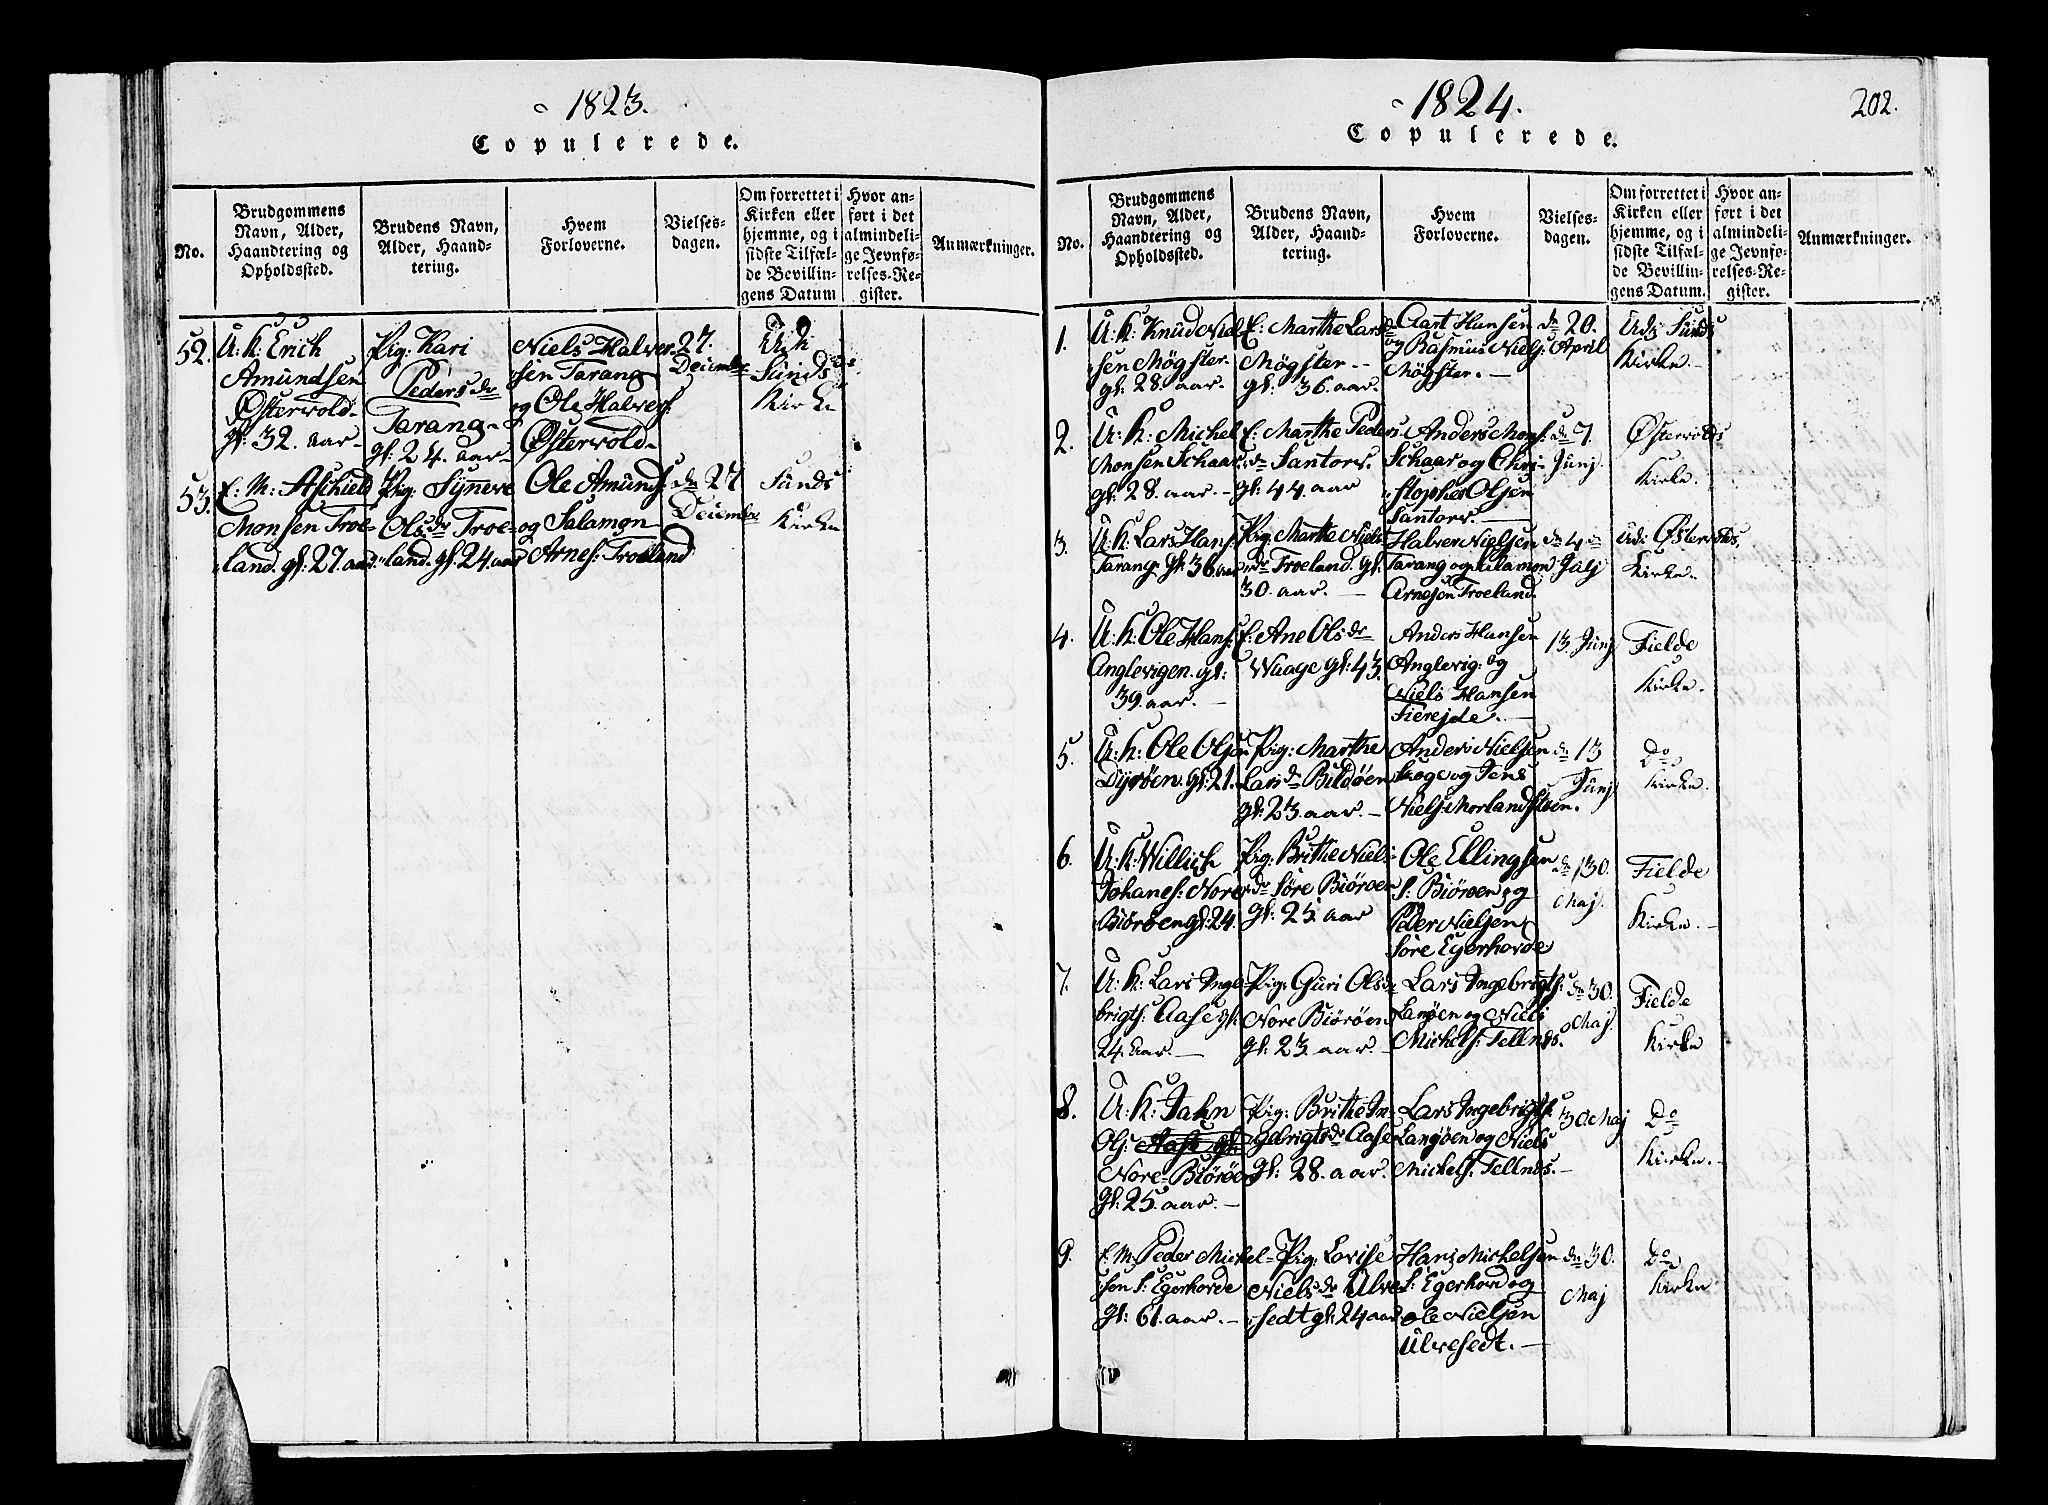 1823.
Copulerede.
No.
Brudgommens
Navn, Alder,
Haandtering og
Opholdssted.
Brudens Navn,
Alder, Haand-
tering.
Hvem
Forloverne.
Vielses-
dagen.
Om forrettet i
Kirken eller
hjemme, og i
sidste Tilfæl-
de Bevillin-
gens Datum
Hvor an-
ført i det
almindeli-
ge Jevnfø-
relses-Re-
gister.
Anmærkninger.
52.
U: K: Erich
Amundsen
Østervold.
gl: 32. aar
Pig: Kari
Peders dr
Tarang
gl: 24. aar
Niels Halver
sen Tarang
og Ole Halvers:
Østervold
27.
Decembr
Sunds
Kirke
53.
E: M: Aschield
Monsen Troe-
land. gl: 27. aar
Pig: Synneve
Ols dr Troe-
land. gl: 24. aar
Ole Amunds:
og Salamon
Arnes: Troeland
dn 27
Decembr
Sunds
Kirke
1824.
202.
Copulerede.
No.
Brudgommens
Navn, Alder,
Haandtering og
Opholdssted.
Brudens Navn,
Alder, Haand-
tering.
Hvem
Forloverne.
Vielses-
dagen.
Om forrettet i
Kirken eller
hjemme, og i
sidste Tilfæl-
de Bevillin-
gens Datum.
Hvor an-
ført i det
almindeli-
ge Jevnfø-
relses-Re-
gister.
Anmærkninger.
1.
U: K: Knud Niel
sen Møgster.
gl: 28. aar.
E: Marthe Lars dr
Møgster.
gl: 36. aar.
Aart Hansen
og Rasmus Niels:
Møgster.
dn 20.
April
Udi Sunds
Kirke.
2.
U: K: Michel
Monsen Schaar
gl: 28. aar.
E: Marthe Peders
dr Santorv.
gl: 44. aar
Anders Mons:
Schaar og Chri-
stopher Olsen
Santorv.
dn 7.
Junj.
Østervolds
Kirke.
3.
U: K: Lars Hans:
Tarang. gl: 36. aar
Pig: Marthe Niels
dr Troeland. gl:
30. aar.
Halver Nielsen
Tarang og Salamon
Arnesen Troeland
dn 4 de
Julj
Udi Østervolds
Kirke.
4.
U: K: Ole Hans:
Anglevigen. gl:
39. aar.
E: Ane Ols dr
Waage gl: 43.
Anders Hansen
Anglevig: og
Niels Hansen
Fierejde.
13. Junj
Fielde
Kirke.
5.
U: K: Ole Olsen
Dyrøen. gl: 21.
Pig: Marthe
Lars dr Bildøen
gl: 23. aar.
Anders Nielsen
Skoge og Jens
Niels: Morlandstøen.
dn 13
Junj
Do
Kirke.
6.
U: K: Willich
Johanes: Nore
Biørøen gl: 24.
Pig: Brithe Niels
dr Søre Biørøen
gl: 25. aar
Ole Ellingsen
S: Biørøen og
Peder Nielsen
Søre Egerhovde
dn 30.
Maj.
Fielde
Kirke.
7.
U: K: Lars Inge-
brigts: Aase gl:
24. aar.
Pig: Guri Ols dr
Nore Biørøen
gl: 23. aar.
Lars Ingebrigts:
Langøen og Niels
Michels: Tellnes.
dn 30.
Maj.
Fielde
Kirke
8.
U: K: Jahn
Ols: Aase gl:
Nore-Biørøen
gl: 25. aar.
Pig: Brithe In-
gebrigts dr Aase
gl: 28. aar.
Lars Ingebrigts:
Langøen og Niels
Michels: Tellnes.
30. Maj
Do
Kirke.
9.
E: M: Peder Michel-
sen S: Egerhovde
gl: 61. aar.
Pig: Lovise
Niels dr Ulve
sedt gl: 24 aar
Hans Michelsen
S: Egerhovd og
Ole Nielsen
Ulvesedt.
dn 30.
Maj
Do
Kirke